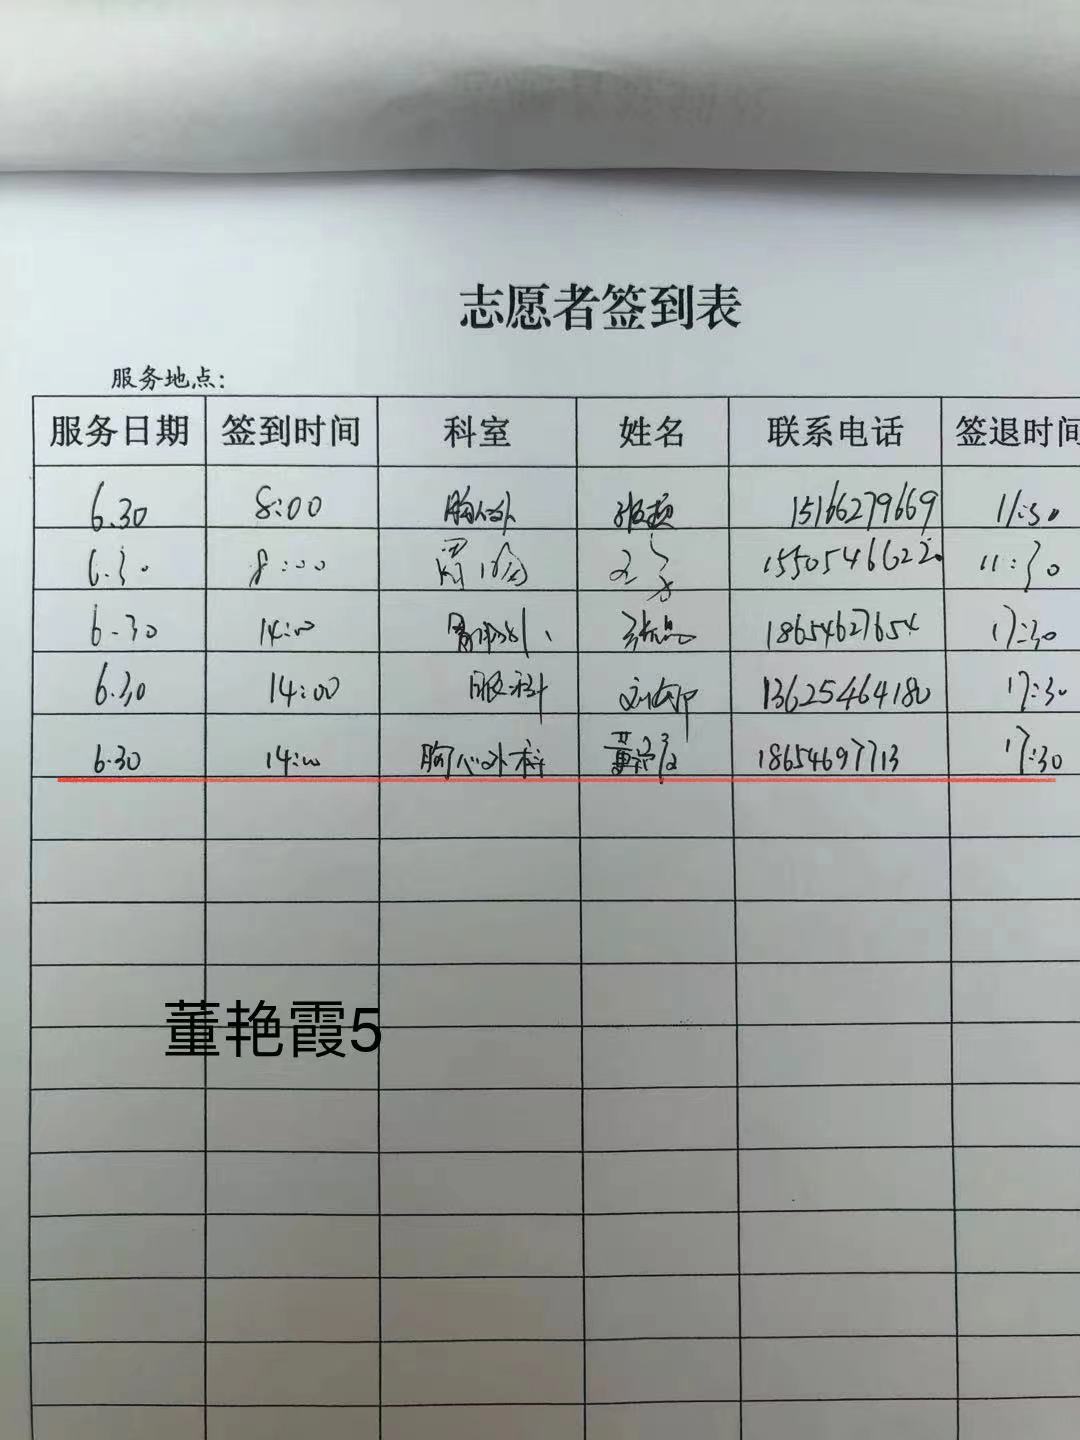 志愿者签到表
服务地点:
服务日期 签到时间 科室 姓名 联系电话 签退时间
6.30 8:00 胸心外 15166279669 11:30
6.30 8:00 15505466220 11:30
6.30 14:00 18654627654 17:30
6.30 14:00 眼科 13625464180 17:30
6.30 14:00 胸心外科 董艳霞 18654697713 17:30
董艳霞5